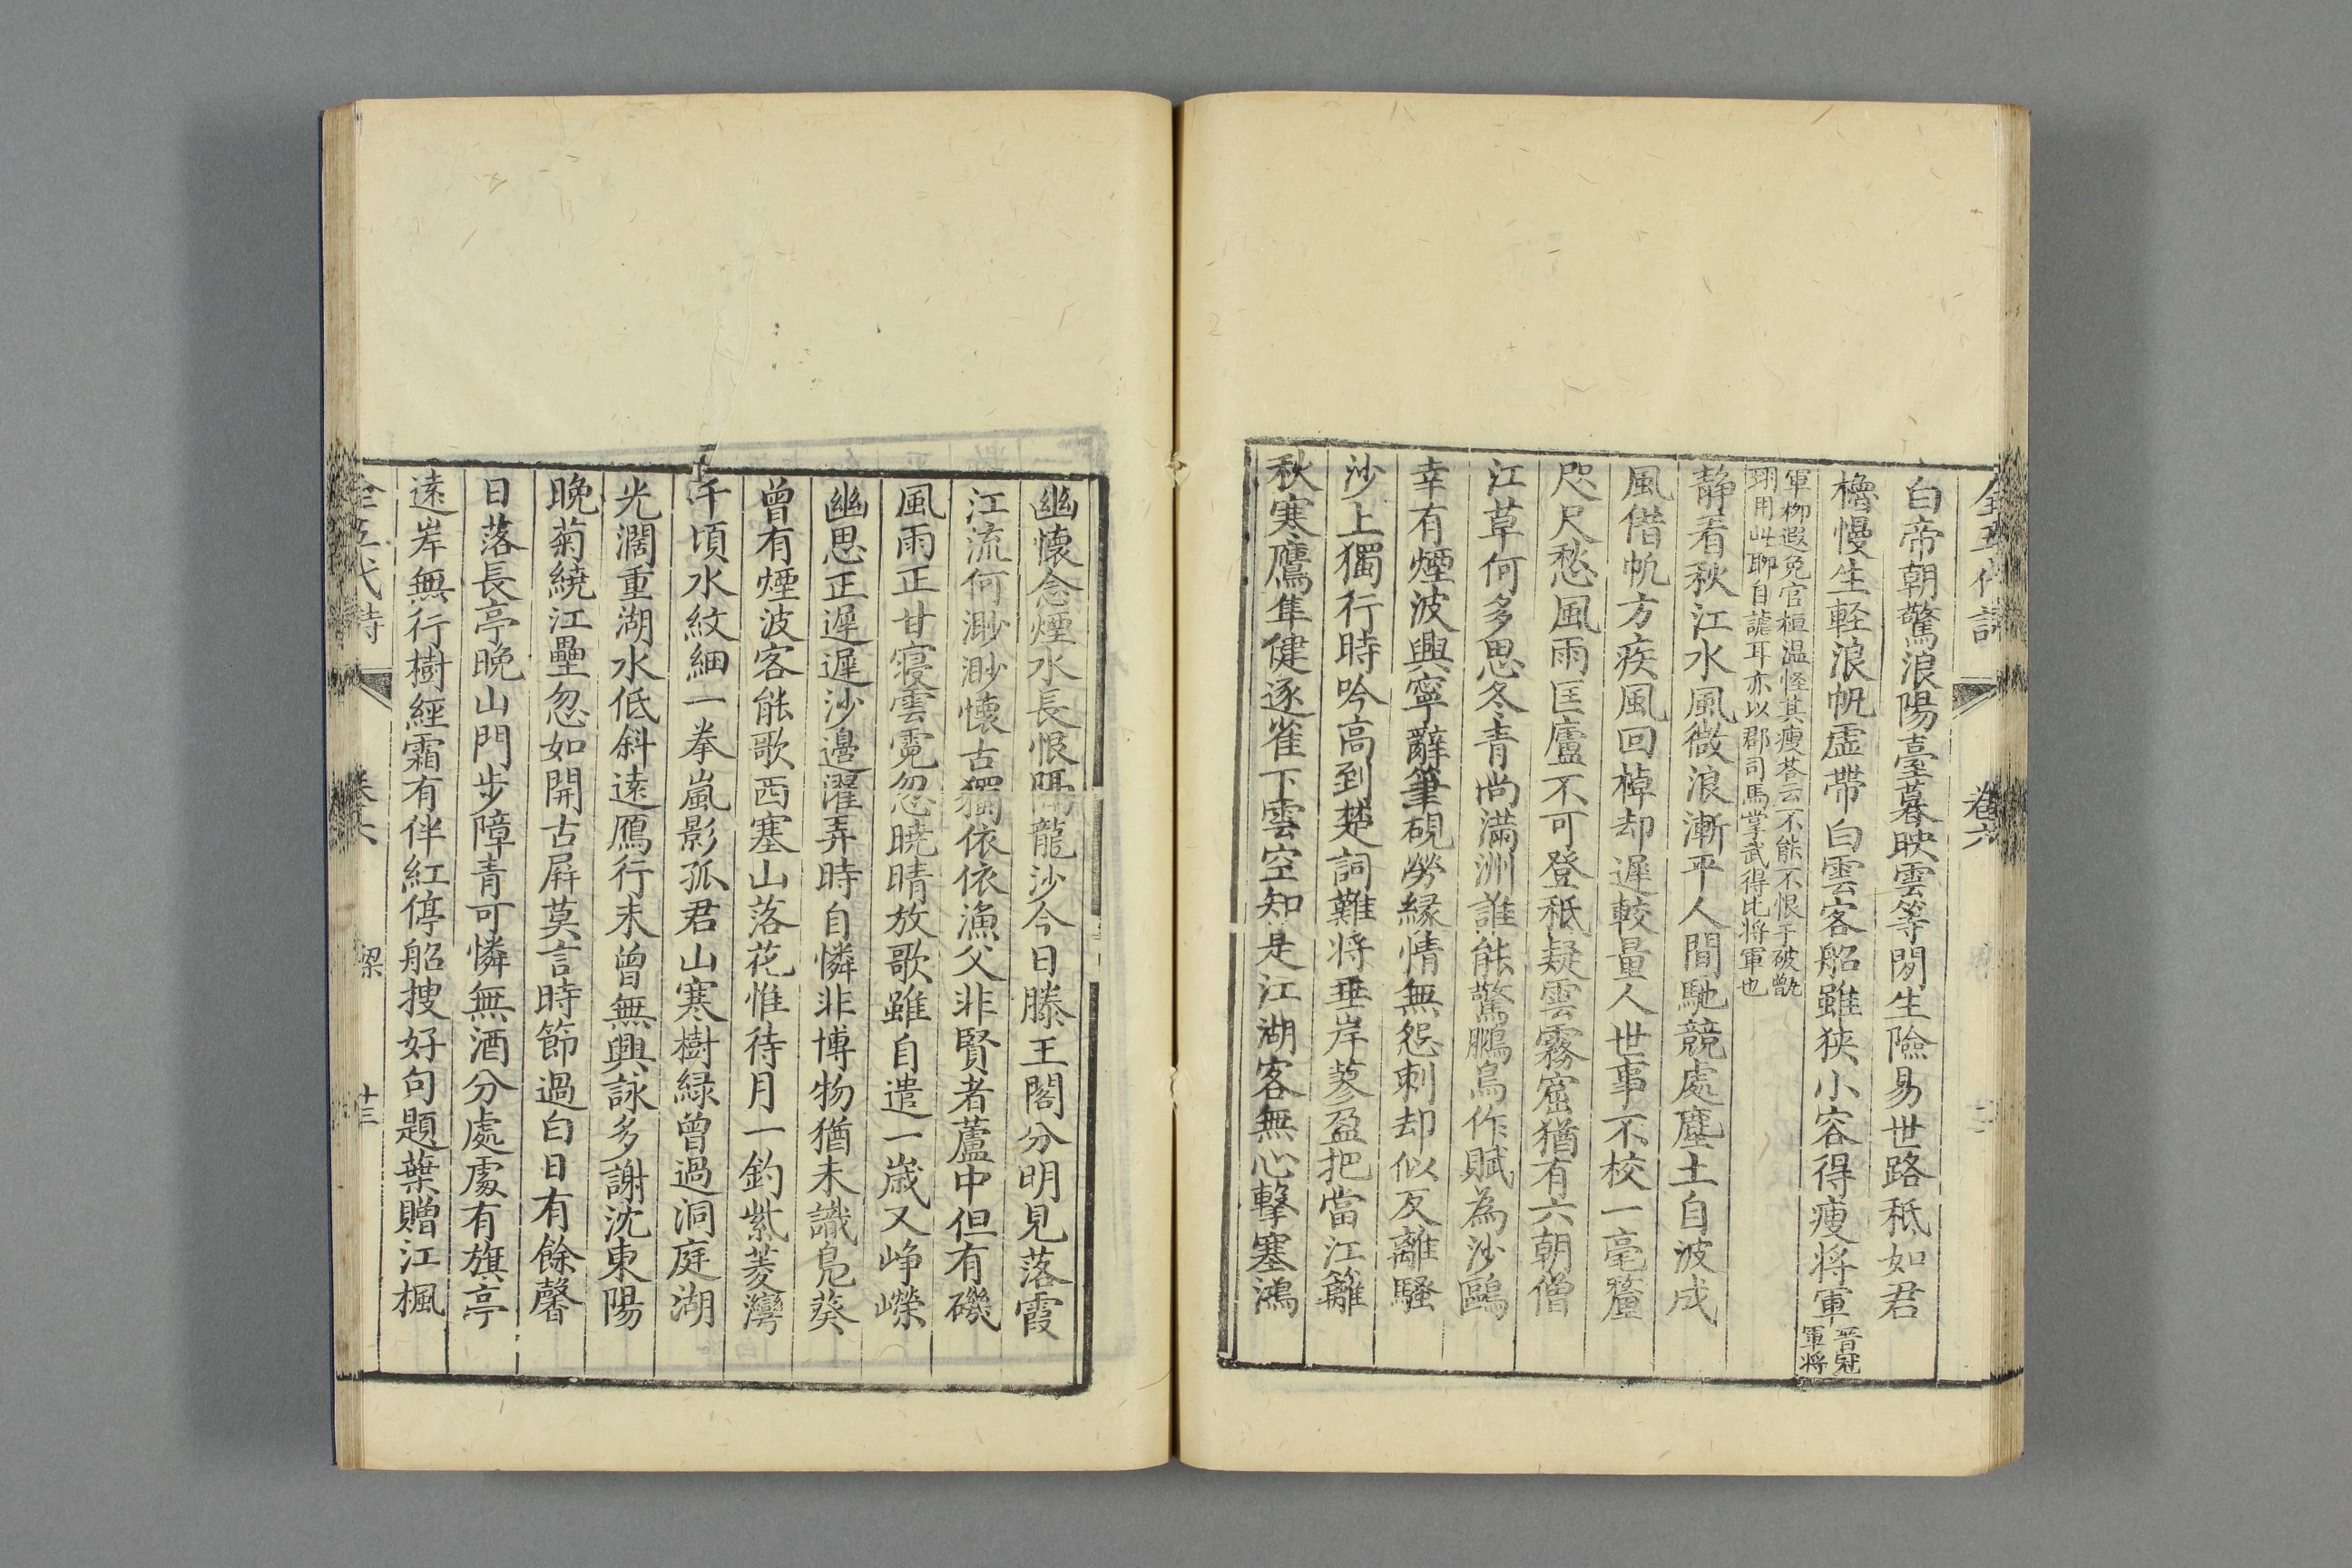 全五代詩 卷六
白帝朝驚浪陽臺暮映雲等閒生險易世路秪如君
櫓慢生軽浪帆虛帶白雲客船雖狹小容得瘦将軍晉冠軍将
軍栁遐免官桓温怪其瘦荅云不能不恨于破甑
翊用此聊自謔耳亦以郡司馬掌武得比将軍也
静看秋江水風微浪漸平人間馳競處塵土自波成
風借帆方疾風回棹却遲較量人世事不校一毫釐
咫尺愁風雨匡廬不可登秪疑雲霧窟猶有六朝僧
江草何多思冬青尚滿洲誰能驚鵩鳥作賦為沙鷗
幸有煙波興寧辭筆硯勞緣情無怨刺却似反離騷
沙上獨行時吟高到楚詞難将垂岸蓼盈把當江蘺
秋寒鷹隼健逐雀下雲空知是江湖客無心擊塞鴻
幽懷念煙水長恨隔龍沙今日滕王閣分明見落霞
江流何渺渺懷古獨依依漁父非賢者蘆中但有磯
風雨正甘寢雲霓忽曉晴放歌雖自遣一歲又崢嶸
幽思正遲遲沙邊濯弄時自憐非博物猶未識鳧葵
曾有煙波客能歌西塞山落花惟待月一釣紫菱灣
千頃水紋細一拳嵐影孤君山寒樹緑曾過洞庭湖
光濶重湖水低斜遠鴈行未曾無興詠多謝沈東陽
晚菊繞江壘忽如開古屏莫言時節過白日有餘馨
日落長亭晚山門步障青可憐無酒分處處有旗亭
遠岸無行樹經霜有伴紅停船搜好句題葉贈江楓
全五代詩 卷六 梁 十三